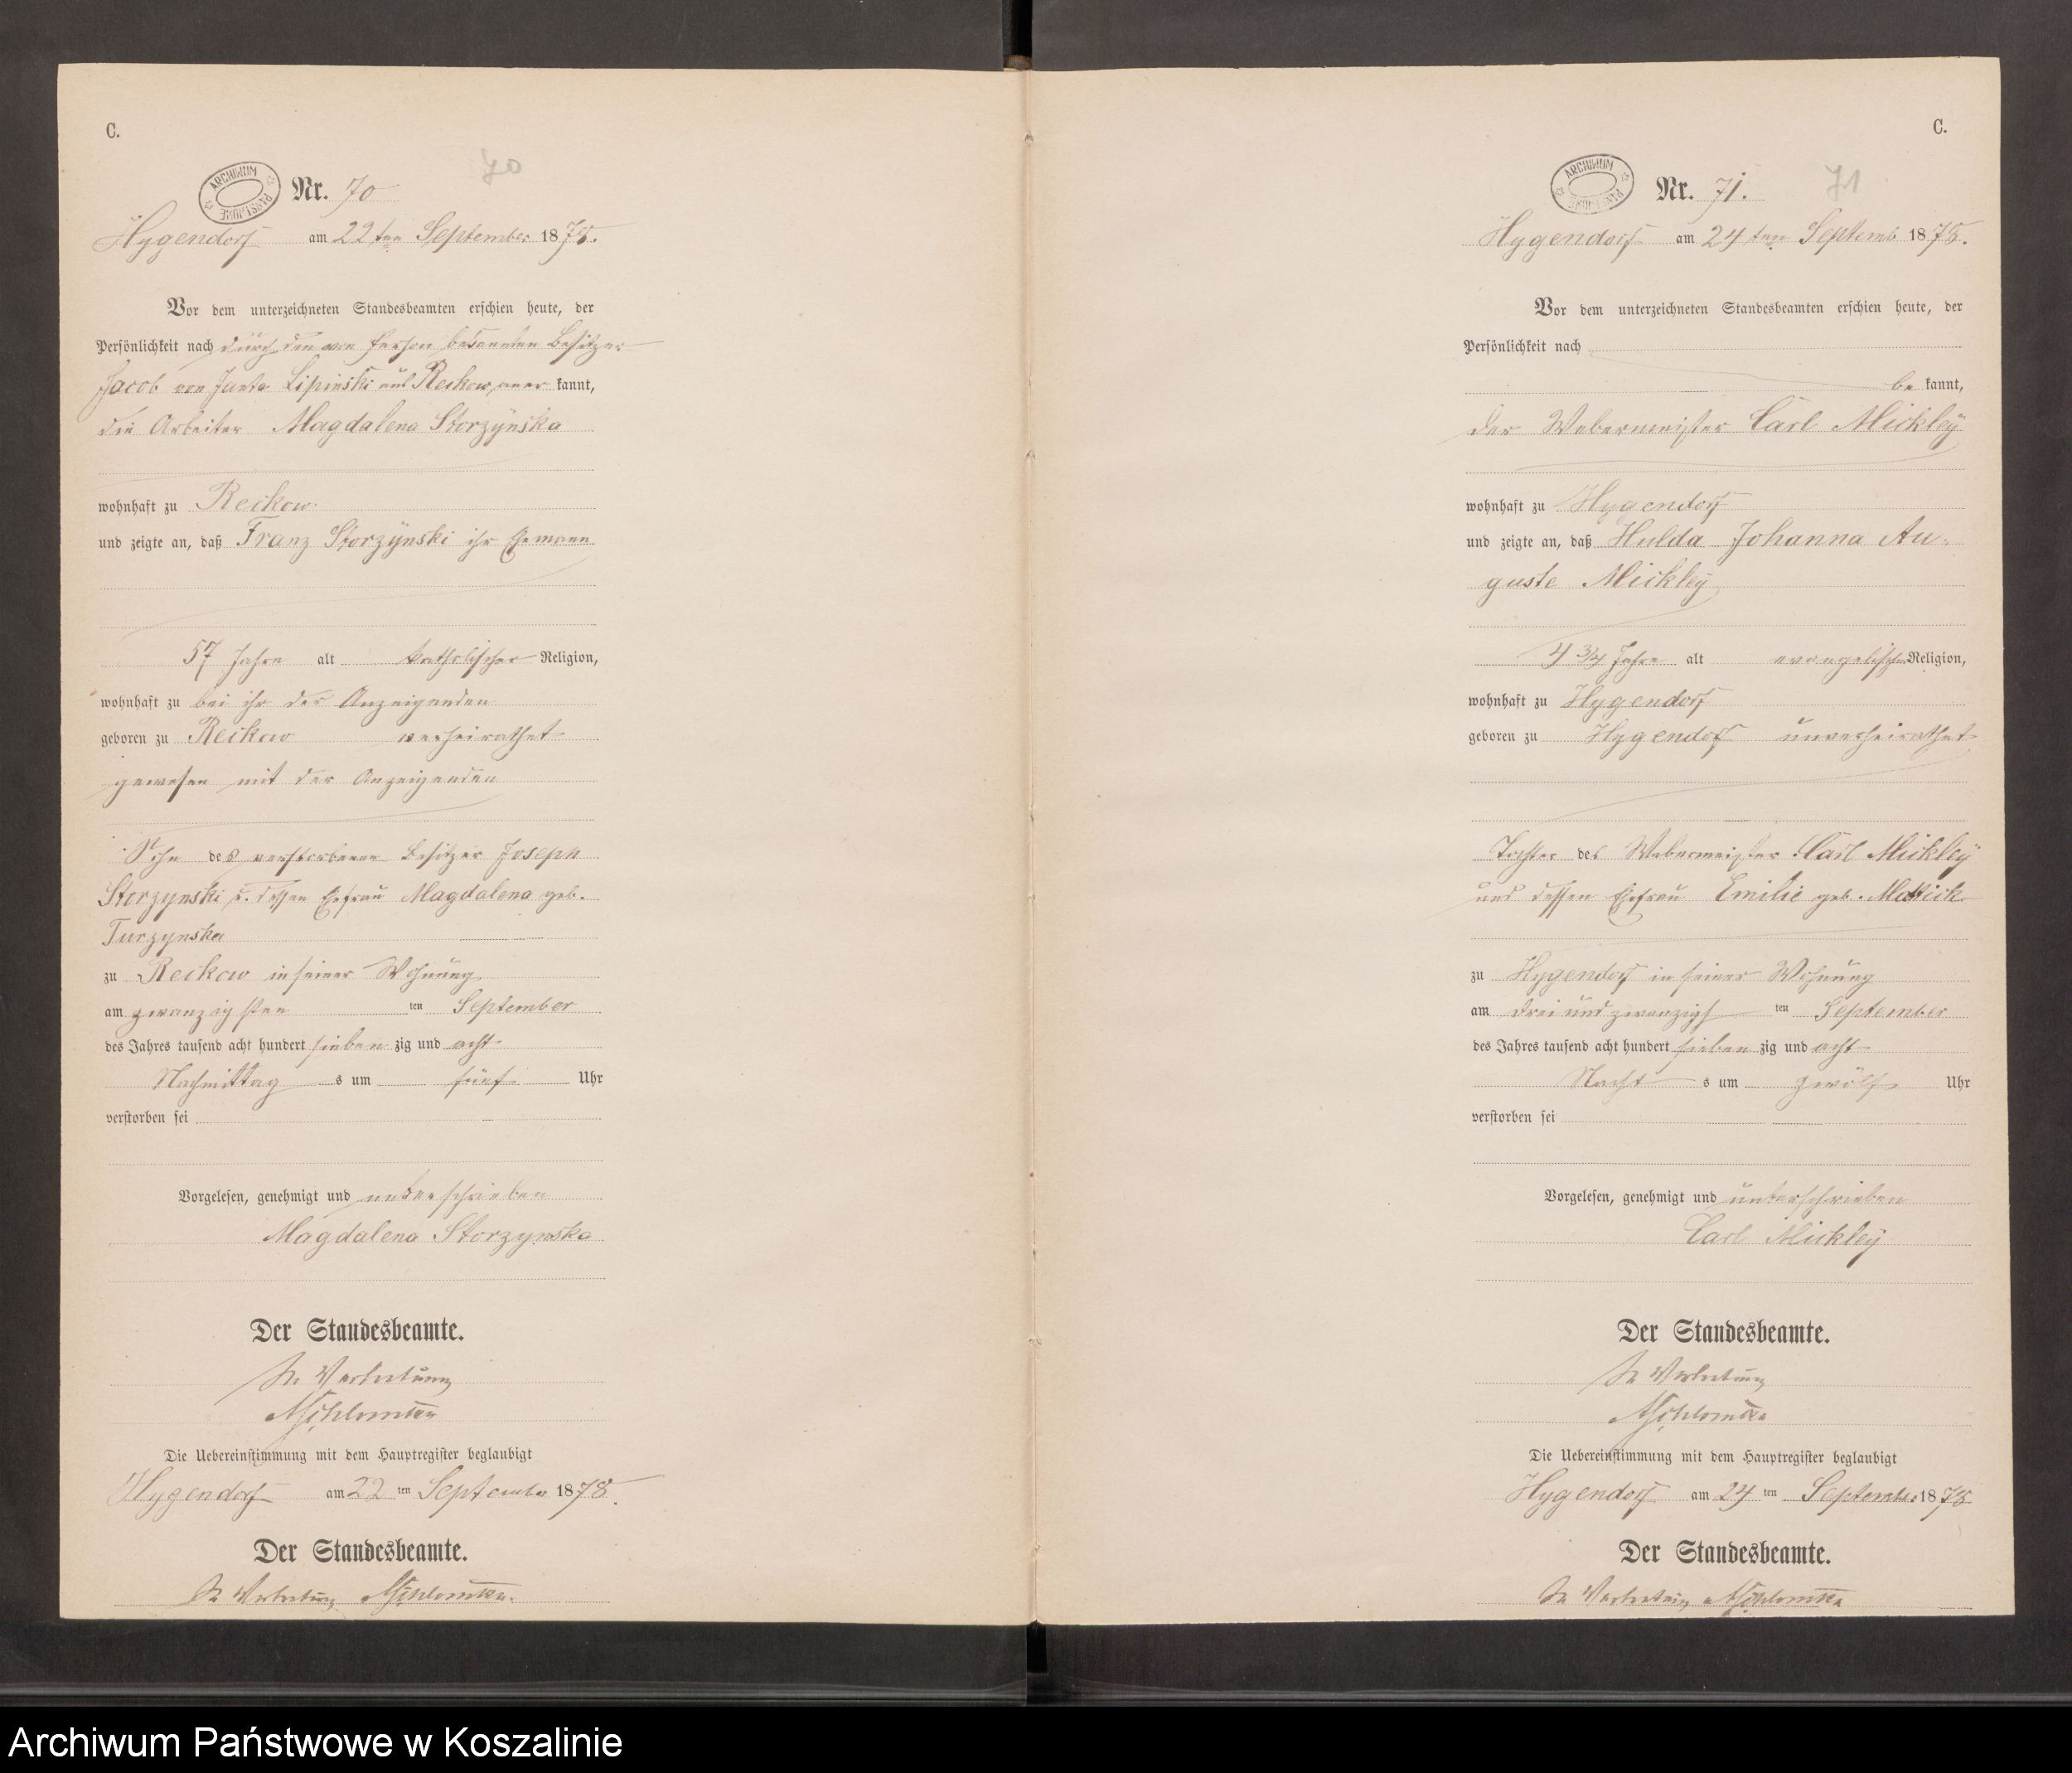 C.
ARCHIWUM PAŃSTWOWE
Nr. 70
70
Hygendorf am 22ten September 1878.
Vor dem unterzeichneten Standesbeamten erschien heute, der
Persönlichkeit nach durch den von Person bekannten Besitzer
Jacob von Janta Lipinski aus Reckow aner kannt,
die Arbeiter Magdalena Storzÿnska
wohnhaft zu Reckow
und zeigte an, daß Franz Storzÿnski ihr Ehemann
57 Jahre alt katholischer Religion,
wohnhaft zu bei ihr der Anzeigenden
geboren zu Reckow verheirathet
gewesen mit der Anzeigenden
Sohn des verstorbenen Besitzer Joseph
Storzynski u. dessen Ehefrau Magdalena geb.
Turzynska
zu Reckow in seiner Wohnung
am zwanzigsten ten September
des Jahres tausend acht hundert sieben zig und acht
Nachmittag s um fünf Uhr
verstorben sei
Vorgelesen, genehmigt und unterschrieben
Magdalena Storzynska
Der Standesbeamte.
In Vertretung
Die Uebereinstimmung mit dem Hauptregister beglaubigt
Hygendorf am 22 ten September 1878.
Der Standesbeamte.
In Vertretung
C.
ARCHIWUM PAŃSTWOWE
Nr. 71.
71
Hygendorf am 24ten Septemb 1878.
Vor dem unterzeichneten Standesbeamten erschien heute, der
Persönlichkeit nach
be kannt,
der Webermeister Carl Mickleÿ
wohnhaft zu Hygendorf
und zeigte an, daß Hulda Johanna Au-
guste Mickleÿ
4 3/4 Jahre alt evangelischer Religion,
wohnhaft zu Hygendorf
geboren zu Hygendorf unverheirathet
Tochter des Webermeister Carl Mickleÿ
und dessen Ehefrau Emilie geb.
zu Hygendorf in seiner Wohnung
am drei und zwanzigs ten September
des Jahres tausend acht hundert sieben zig und acht
Nacht s um zwölf Uhr
verstorben sei
Vorgelesen, genehmigt und unterschrieben
Carl Mickleÿ
Der Standesbeamte.
In Vertretung
Die Uebereinstimmung mit dem Hauptregister beglaubigt
Hygendorf am 24 ten September 1878
Der Standesbeamte.
In Vertretung
Archiwum Państwowe w Koszalinie